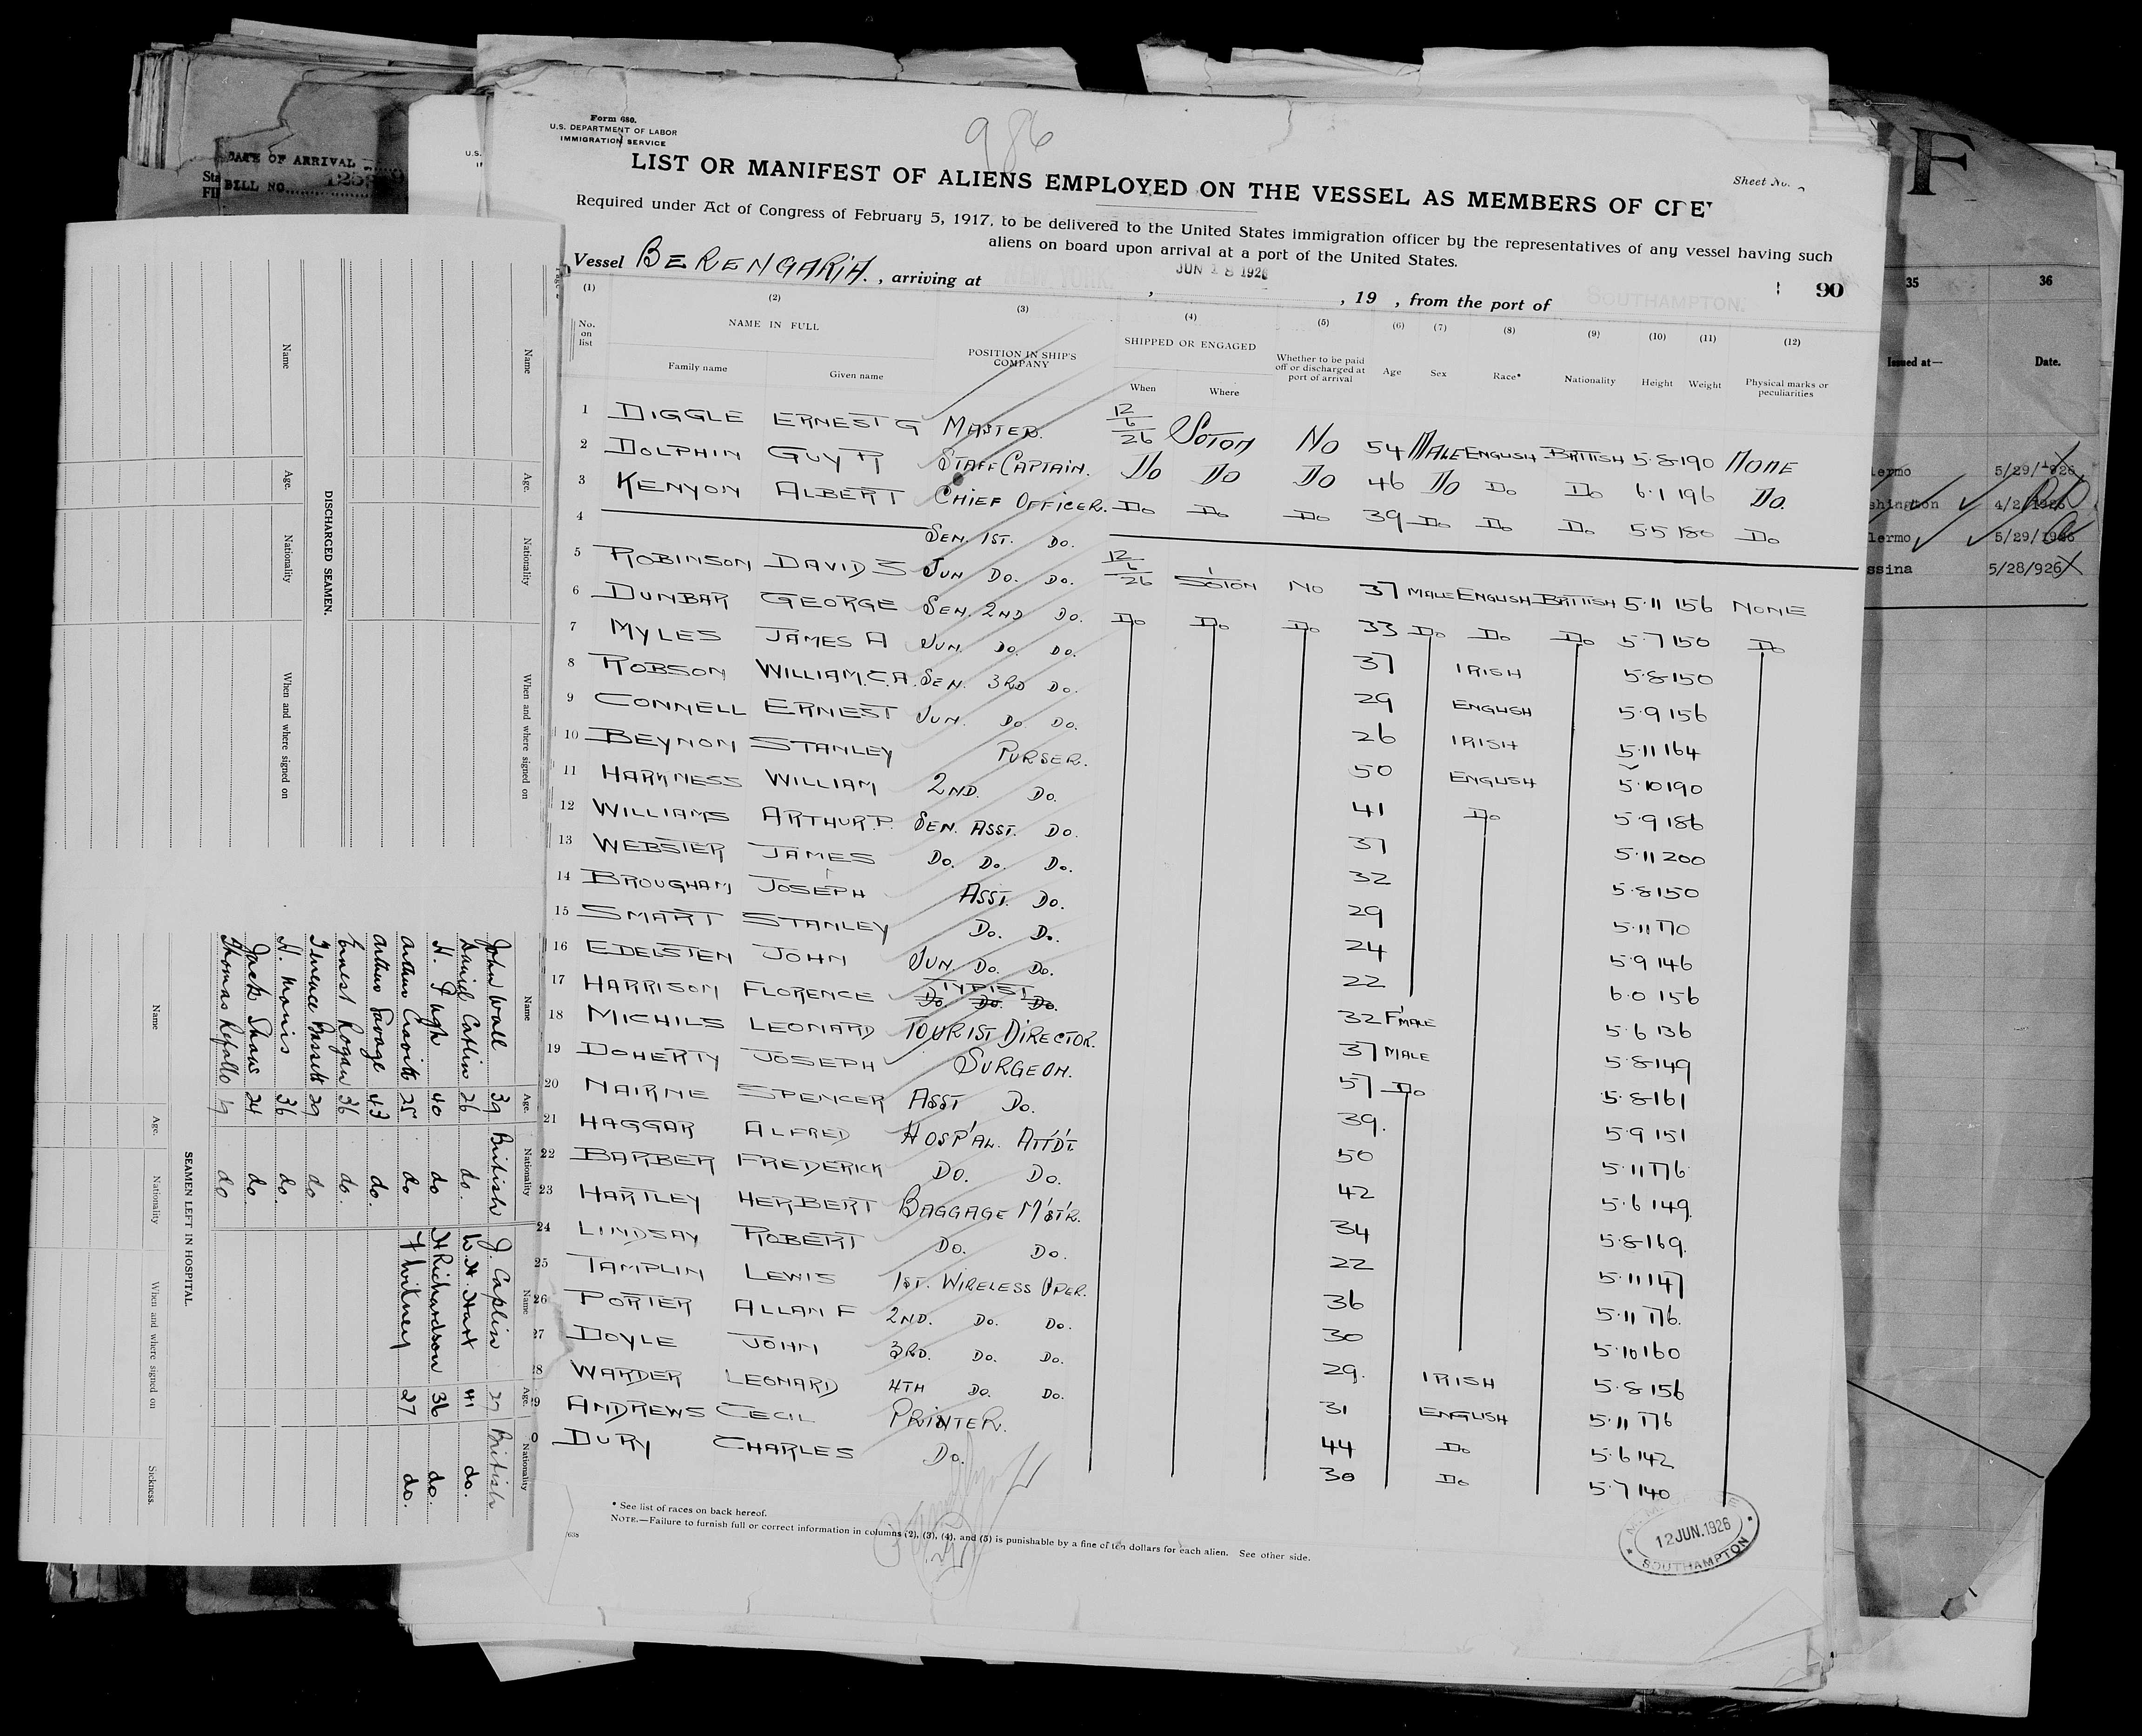 Form 680.
U.S. DEPARTMENT OF LABOR
IMMIGRATION SERVICE
986
LIST OR MANIFEST OF ALIENS EMPLOYED ON THE VESSEL AS MEMBERS OF CREW
Sheet No.
Required under Act of Congress of February 5, 1917, to be delivered to the United States immigration officer by the representatives of any vessel having such
aliens on board upon arrival at a port of the United States.
Vessel BERENGARIA. , arriving at NEW YORK. , JUN 18 1926 , 19 , from the port of SOUTHAMPTON. 90
(1) (2) (3) (4) (5) (6) (7) (8) (9) (10) (11) (12)
No. on list NAME IN FULL POSITION IN SHIP'S COMPANY SHIPPED OR ENGAGED Whether to be paid off or discharged at port of arrival Age Sex Race* Nationality Height Weight Physical marks or peculiarities
Family name Given name When Where
1 DIGGLE ERNEST G MASTER. 12/6/26 SOTON NO 54 MALE ENGLISH BRITISH 5.8 190 NONE
2 DOLPHIN GUY R STAFF CAPTAIN. DO DO DO 46 DO DO DO 6.1 196 DO.
3 KENYON ALBERT CHIEF OFFICER. DO DO DO 39 DO DO DO 5.5 180 DO
4 SEN. 1ST. DO.
5 ROBINSON DAVID S JUN DO. DO. 12/6/26 SOTON NO 37 MALE ENGLISH BRITISH 5.11 156 NONE
6 DUNBAR GEORGE SEN. 2ND DO. DO DO DO 33 DO DO DO 5.7 150 DO
7 MYLES JAMES A JUN. DO. DO. 37 IRISH 5.8 150
8 ROBSON WILLIAM.C.A. SEN. 3RD DO. 29 ENGLISH 5.9 156
9 CONNELL ERNEST JUN. DO DO. 26 IRISH 5.11 164
10 BEYNON STANLEY PURSER. 50 ENGLISH 5.10 190
11 HARKNESS WILLIAM 2ND. DO. 41 DO 5.9 186
12 WILLIAMS ARTHUR.P. SEN. ASST. DO. 37 5.11 200
13 WEBSTER JAMES DO. DO. DO. 32 5.8 150
14 BROUGHAM JOSEPH ASST. DO. 29 5.11 170
15 SMART STANLEY DO. DO. 24 5.9 146
16 EDELSTEN JOHN JUN. DO. DO. 22 6.0 156
17 HARRISON FLORENCE TYPIST DO DO. DO. 32 F'MALE 5.6 136
18 MICHILS LEONARD TOURIST DIRECTOR. 37 MALE 5.8 149
19 DOHERTY JOSEPH SURGEON. 57 DO 5.8 161
20 NAIRNE SPENCER ASST DO. 39. 5.9 151
21 HAGGAR ALFRED HOSP'AL. ATT'D'T. 50 5.11 176
22 BARBER FREDERICK DO. DO. 42 5.6 149.
23 HARTLEY HERBERT BAGGAGE M'ST'R. 34 5.8 169.
24 LINDSAY ROBERT DO. DO. 22 5.11 147
25 TAMPLIN LEWIS 1ST. WIRELESS OPER. 36 5.11 176.
26 PORTER ALLAN F 2ND. DO. DO. 30 5.10 160
27 DOYLE JOHN 3RD. DO. DO. 29. IRISH 5.8 156
8 WARDER LEONARD 4TH DO. DO. 31 ENGLISH 5.11 176
9 ANDREWS CECIL PRINTER. 44 DO 5.6 142
0 DURY CHARLES DO. 30 DO 5.7 140
* See list of races on back hereof.
NOTE.—Failure to furnish full or correct information in columns (2), (3), (4), and (5) is punishable by a fine of ten dollars for each alien. See other side.
12 JUN. 1926
SOUTHAMPTON
DATE OF ARRIVAL
BILL NO.
Name Age. Nationality When and where signed on
DISCHARGED SEAMEN.
Name Age. Nationality When and where signed on
Name Age. Nationality Name Age. Nationality
John Wall 39 British J. Caplin 27 British
Daniel Catlin 26 do. W. H. Hart 41 do.
H. Pugh 40 do H Richardson 36 do.
Arthur 25 do F Whitney 27 do.
Arthur Savage 43 do.
Ernest Rogan 36 do.
Terence Bassett 29 do
H. Morris 36 do.
Jack Shaw 24 do.
Thomas 19 do
SEAMEN LEFT IN HOSPITAL.
Name Age. Nationality When and where signed on Sickness.
F
35 36
Issued at— Date.
lermo 5/29/1926
shington 4/2/1926
lermo 5/29/1926
ssina 5/28/926